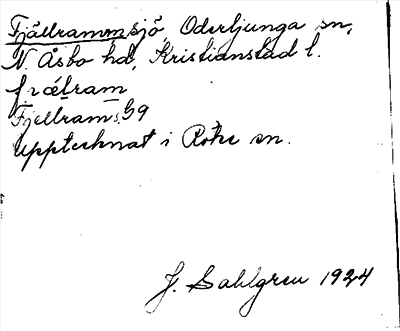 Fjällrammsjö, Oderljunga sn,
N. Åsbo hd, Kristianstad l.
Fjellrams. G9
upptecknat i Röke sn.
J. Sahlgren 1924